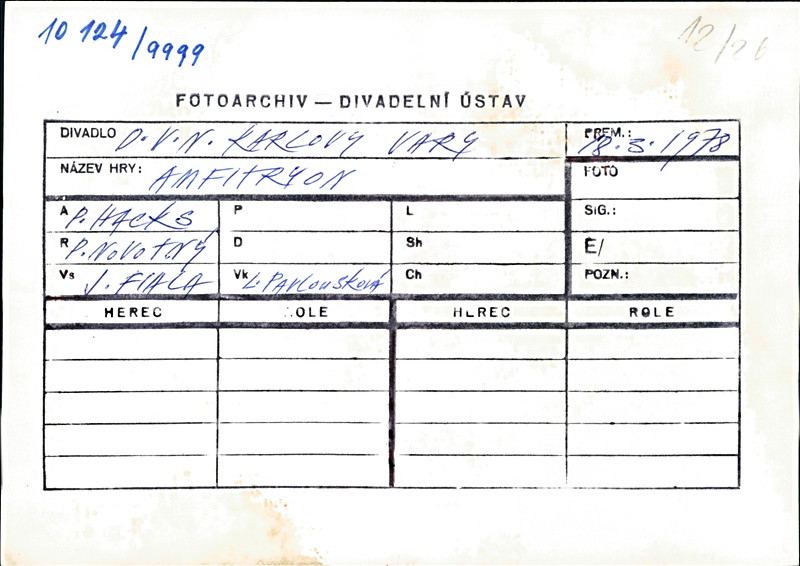 10 124/9999
12/26
FOTOARCHIV — DIVADELNÍ ÚSTAV
DIVADLO D.V.N. KARLOVY VARY PREM.: 18.3.1978
NÁZEV HRY: AMFITRYON FOTO
A P. HACKS P L SIG.:
R P. NOVOTNÝ D Sh Ë/
Vs J. FIALA Vk L. PAVLOUSKOVÁ Ch POZN.:
HEREC ROLE HEREC ROLE